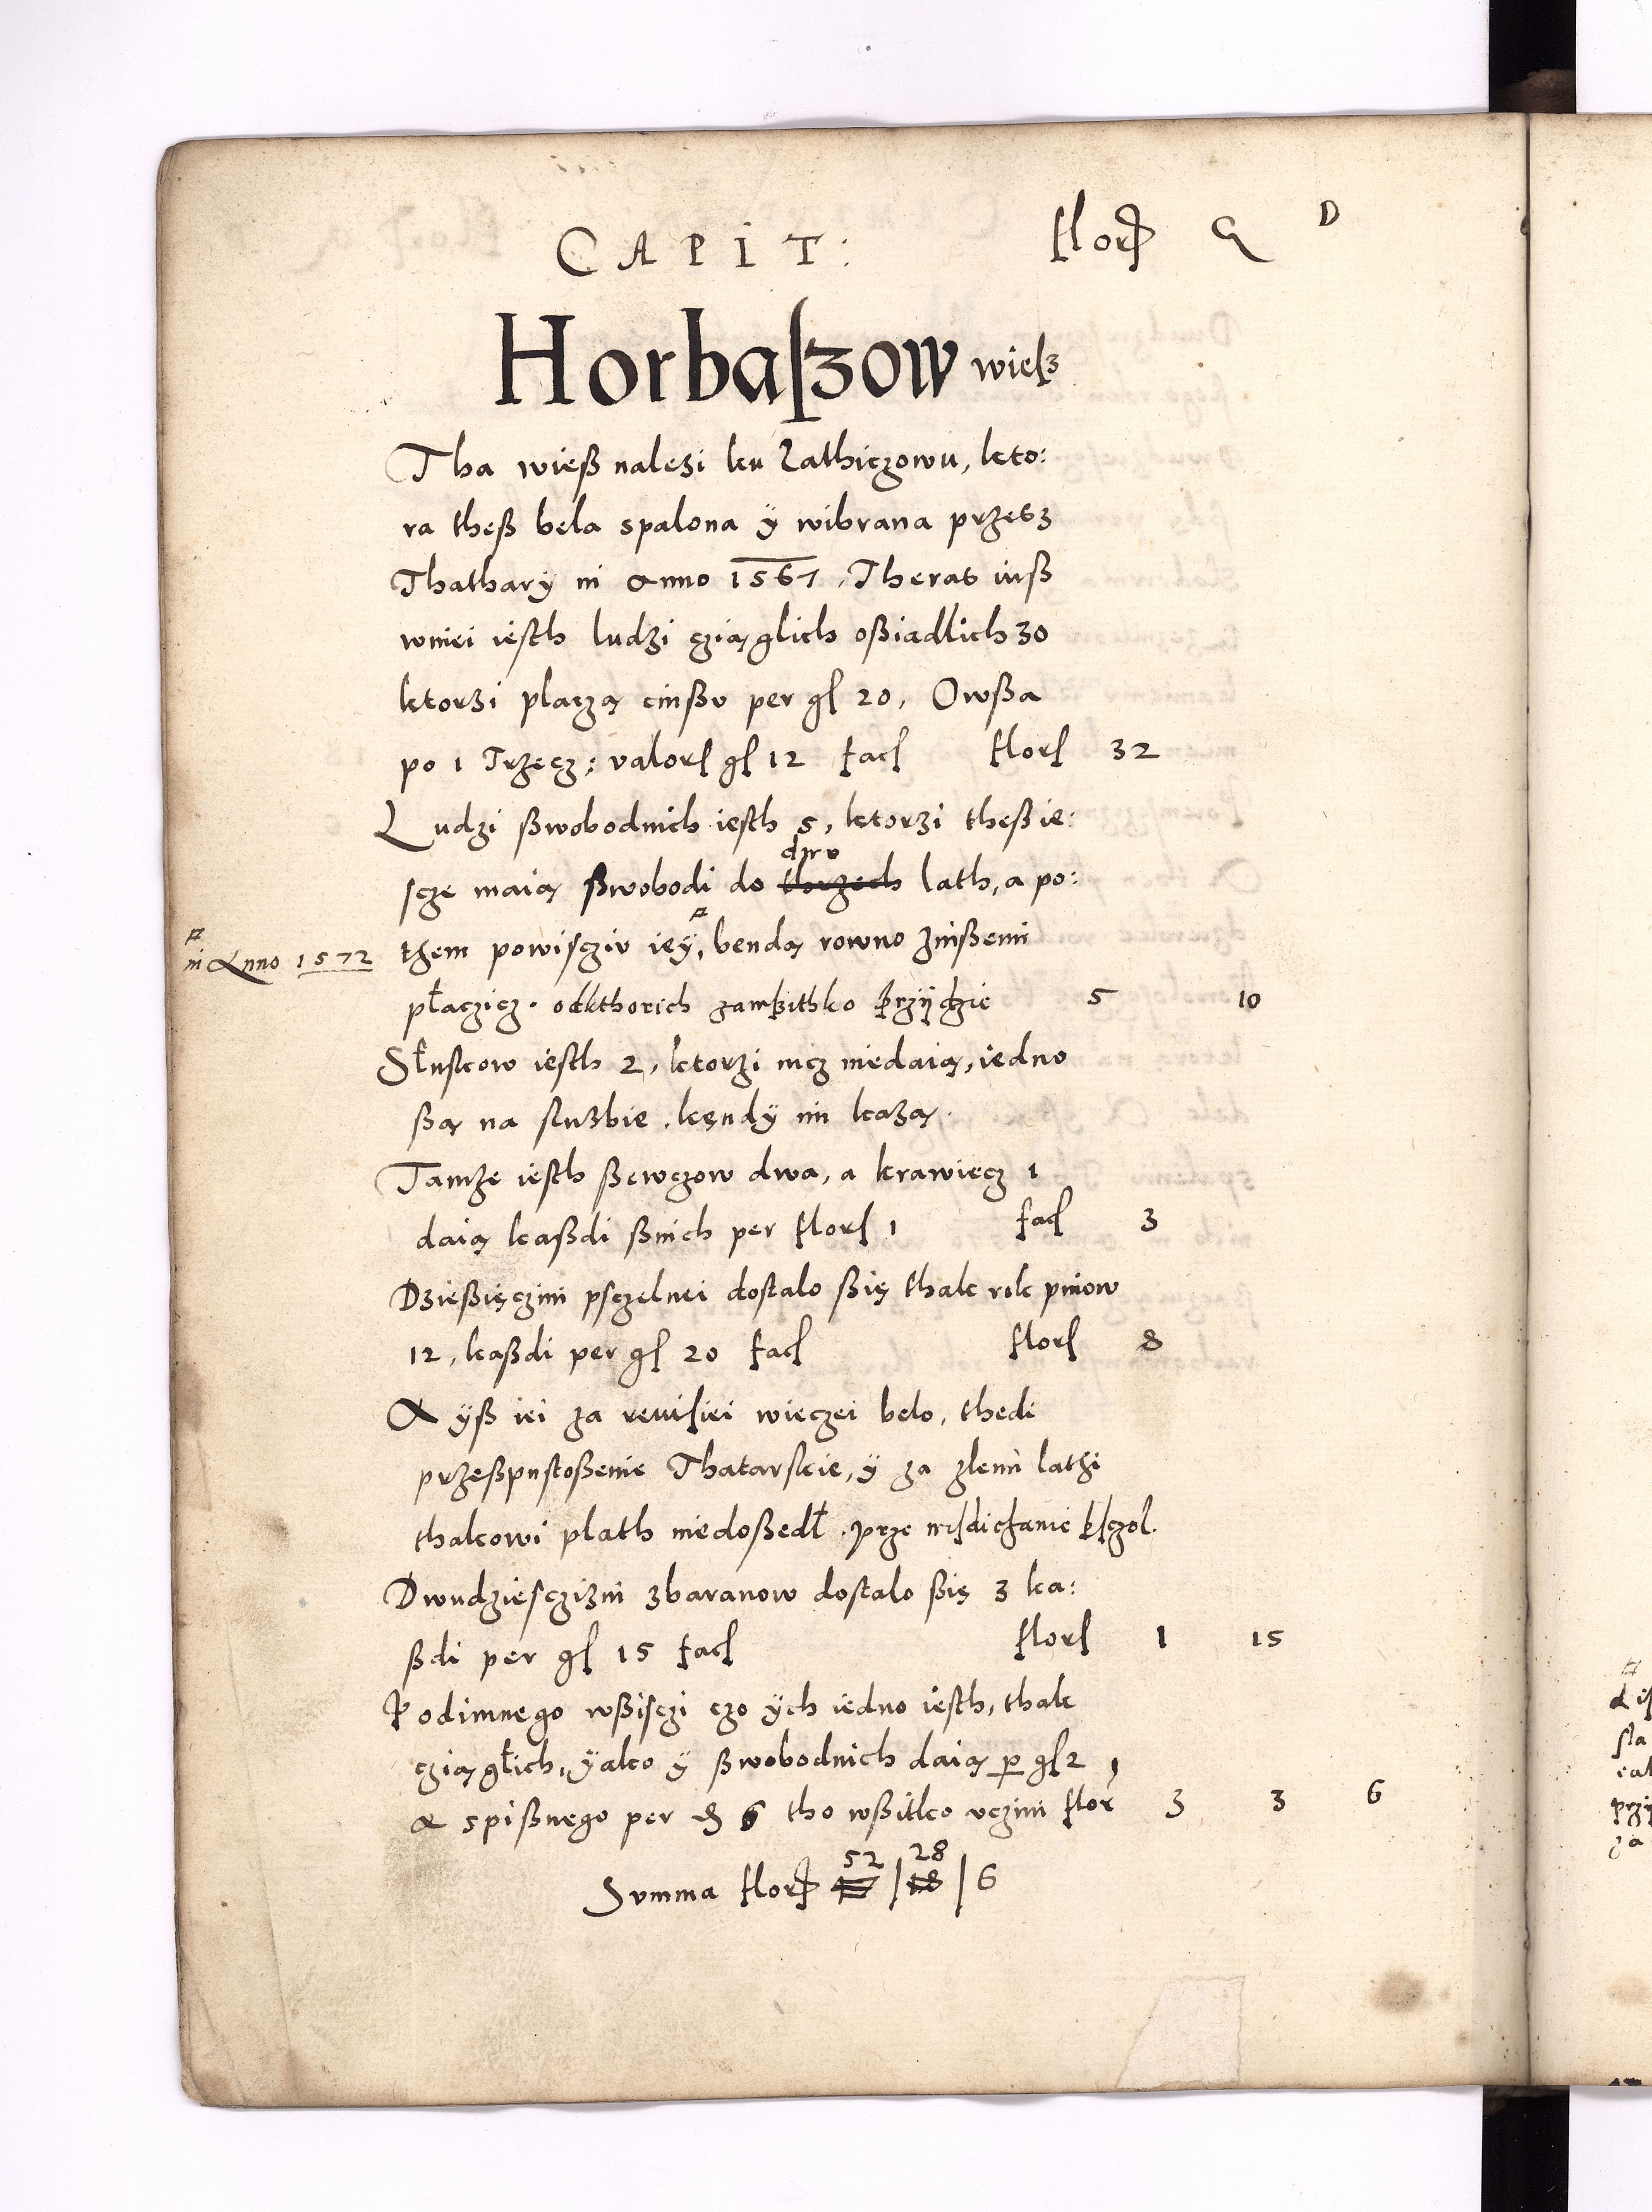 CAPIT: flor G D
Horbaſzow wieſz
Tha wieß nalezi ku Lathiczowu, kto:
ra theß bela spalona ÿ wibrana przets
Thatharÿ in Anno 1567, Theras iuß
wniei iesth ludzi cziąglich oßiadlich 30
ktorzi placzą cinßu per gſ 20, Owßa
po 1 Trzecz: valorſ gſ 12 facſ florſ 32
Ludzi ßwobodnich iesth 5, ktorzi theß ie:
scze maią ßwobodi do dwu lath, a po:
them powiscziu ieÿ, bendą rowno zinßemi
in Anno 1572
płaczicz. odkthorich zambithko przÿdzie 5 10
Słuskow iesth 2, ktorzi nicz niedaią, iedno
ßą na służbie, kęndÿ im każą.
Tamże iesth ßewczow dwa, a krawiecz 1
daią kaßdi ßnich per florſ 1 facſ 3
Dzießięczini psczelnei dostalo ßię thak rok pniow
12, kaßdi per gſ 20 facſ florſ 8
A ÿß iei za reuisiei wieczei belo, thedi
przeßpustoßenie Thatarskie, ÿ za zlemi lathi
thakowi plath niedoßedł. prze psczol.
Dwudziesczizni zbaranow dostalo ßię 3 ka:
ßdi per gſ 15 facſ florſ 1 15
Podimnego wßisczi czo ÿch iedno iesth, thak
cziągłich, ÿako ÿ ßwobodnich daią per gſ 2,
a spißnego per 6 tho wßitko vczini flor 3 3 6
Summa flor 52 | 28 | 6